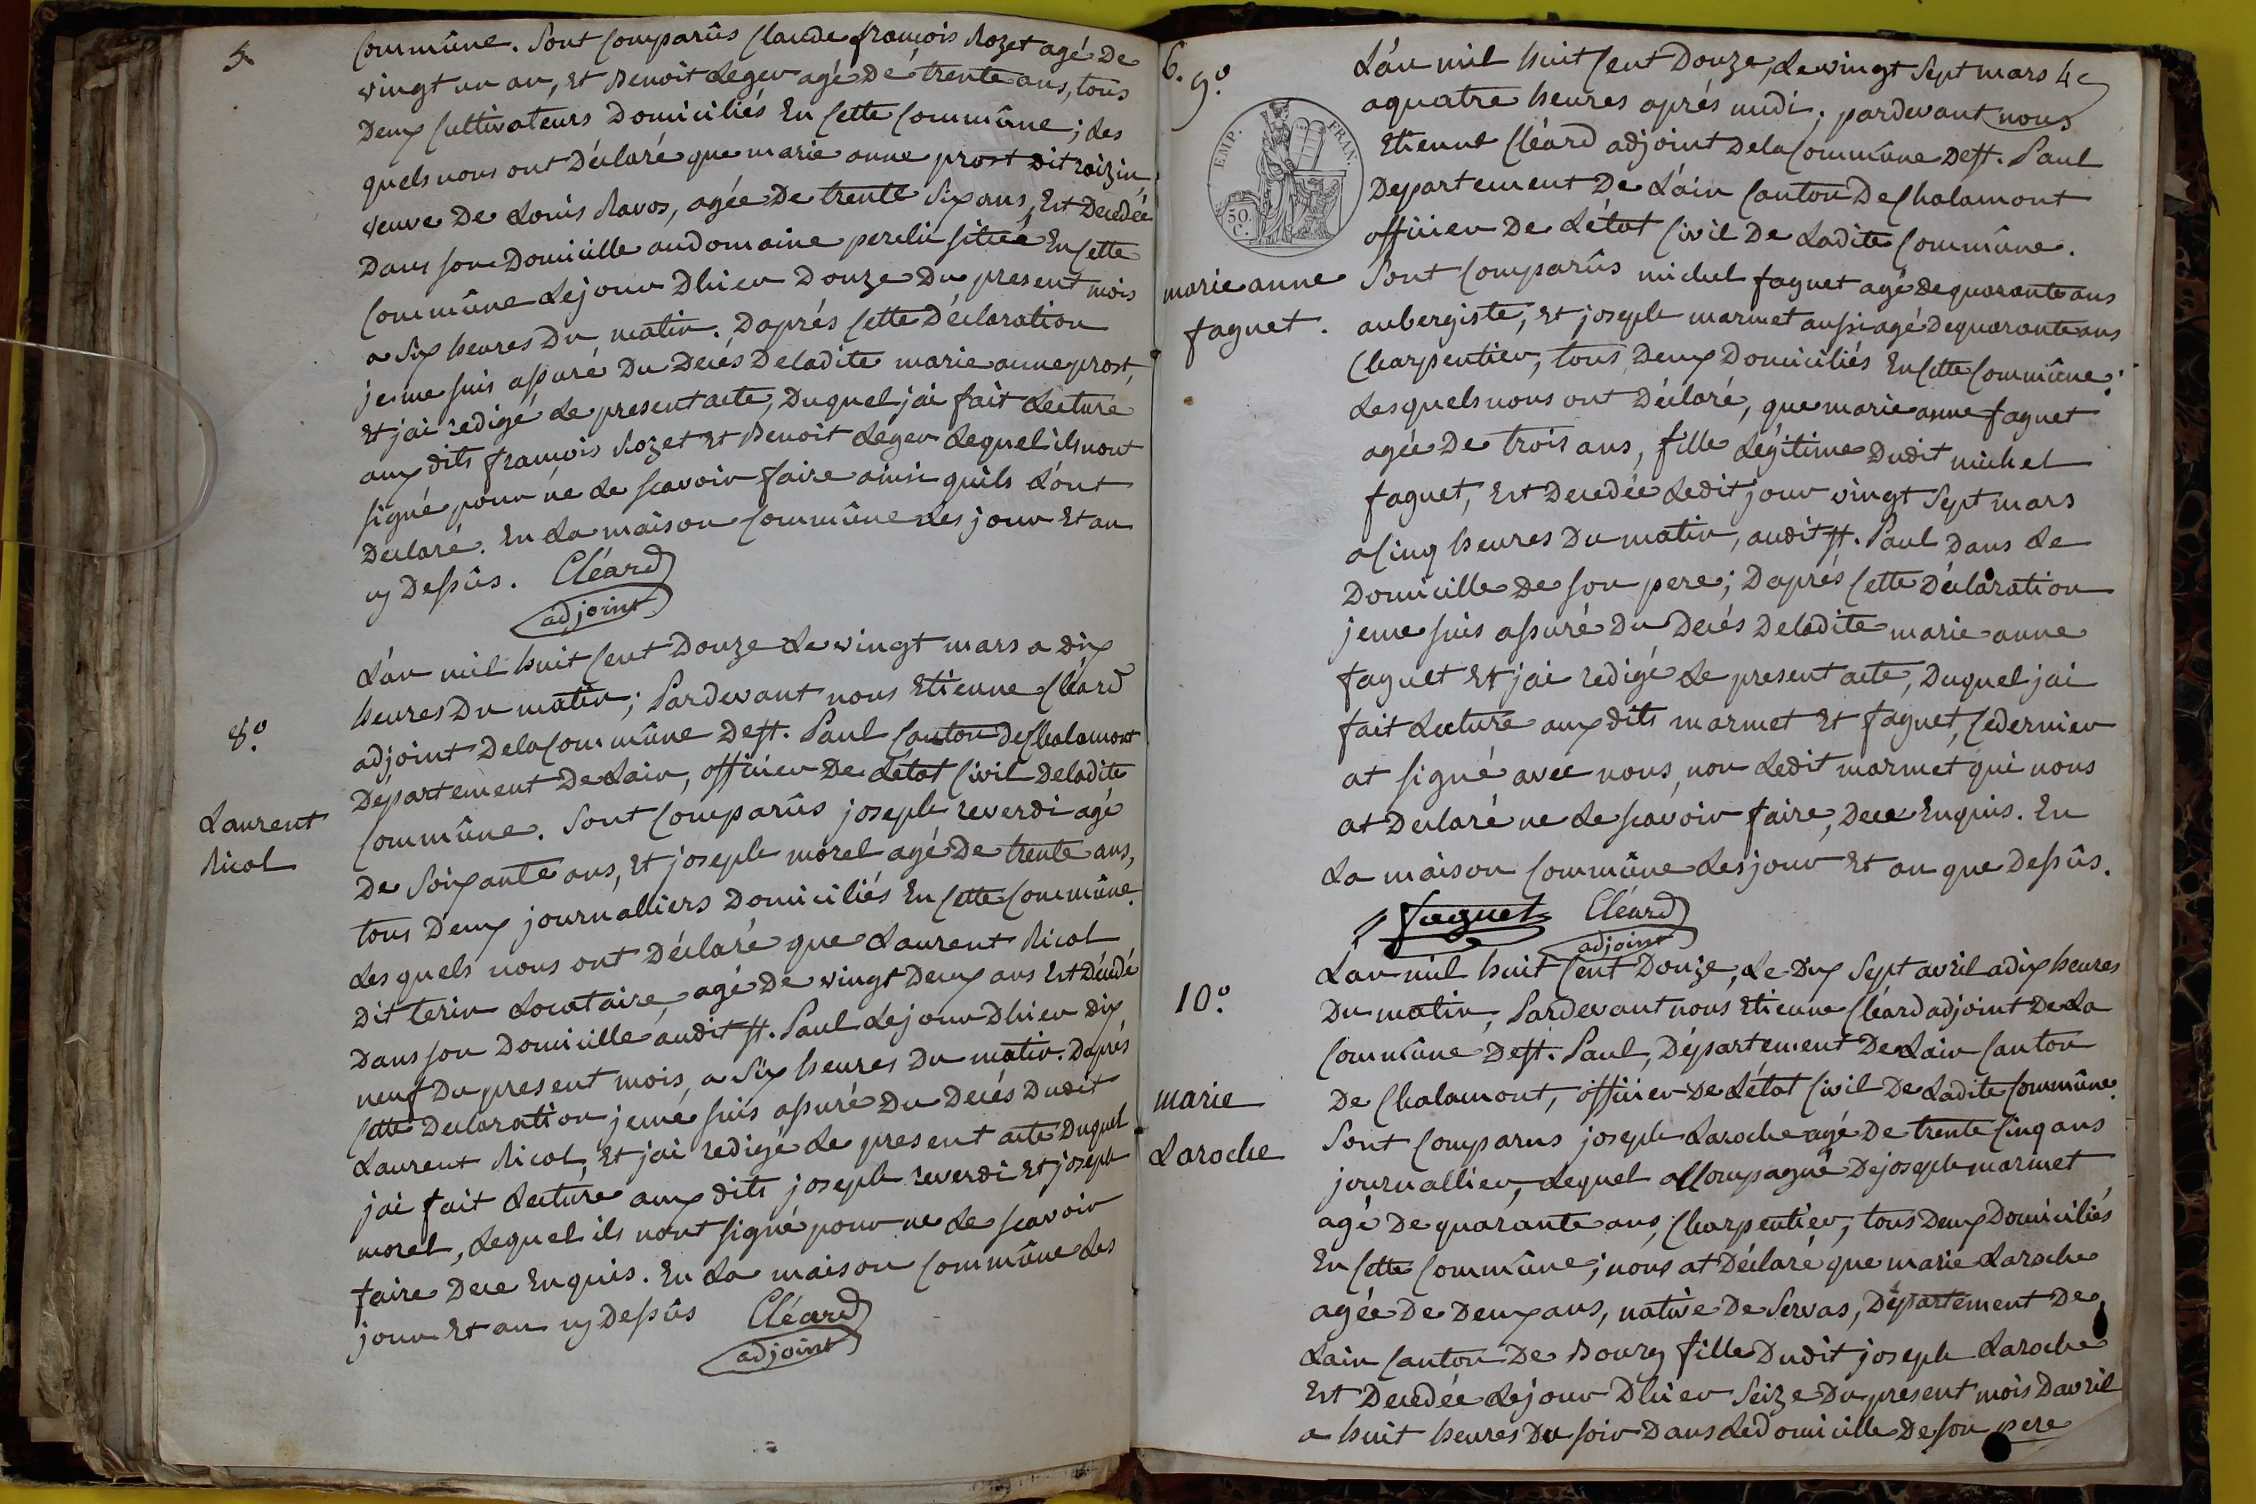 5
Commûne. Sont Comparûs Claude françois Rozet agé De
vingt un an, Et Benoit Leger agé De trente ans, tous
Deux Cultivateurs Domiciliés En Cette Commûne; Les
quels nous ont Déclaré que marie anne prost dit raizin
veuve De Louis Ravos, agée De trente Six ans, Est Decedée
Dans son Domicille au domaine perelu située En Cette
Commûne Le jour Dhier Douze Du present mois
a Six heures Du matin. Daprés Cette Déclaration
je me suis assuré Du Decés De ladite marie anne prost,
Et jai redigé Le present acte, Duquel jai fait Lecture
aux dits françois Rozet Et Benoit Leger Lequel ils nont
signé pour ne Le scavoir faire ainsi quils L'ont
Déclaré. En La maison Commûne Les jour Et an
cy Dessûs. Cléard
adjoint
8.º
Laurent
Nicol
L'an mil huit Cent Douze Le vingt mars a dix
heures Du matin; Pardevant nous Etienne Cléard
adjoint De la Commûne De St. Paul Canton De Chalamont
Département De Lain, officier De Létat Civil De ladite
Commûne. Sont Comparûs joseph reverdi agé
De Soixante ans, Et joseph morel agé De trente ans,
tous Deux journalliers Domiciliés En Cette Commûne.
Les quels nous ont Déclaré que Laurent Nicol
Dit terin Locataire, agé De vingt Deux ans Est Décédé
Dans son Domicille audit St. Paul Le jour Dhier dix
neuf Du present mois, a Six heures Du matin. Daprés
Cette Declaration je me suis assuré Du Decés Dudit
Laurent Nicol, Et jai redigé Le present acte Duquel
jai fait Lecture aux dits joseph reverdi Et joseph
morel, Lequel ils nont signé pour ne Le scavoir
faire De ce Enquis. En La maison Commûne Les
jour Et an cy Dessûs Cléard
adjoint
6.
9.º
EMP. FRAN.
50.
C.
marie anne
faguet.
L'an mil huit Cent Douze, Le vingt Sept mars
a quatre heures aprés midi; pardevant nous
Etienne Cléard adjoint De la Commûne De St. Paul
Departement De L'ain Canton De Chalamont
officier De Létat Civil De Ladite Commûne.
Sont Comparûs michel faguet agé De quarante ans
aubergiste, Et joseph marmet aussi agé De quarante ans
Charpentier, tous Deux Domiciliés En Cette Commûne.
Lesquels nous ont Déclaré, que marie anne faguet
agée De trois ans, fille Légitime Dudit michel
faguet, Est Decedée Ledit jour vingt Sept mars
a Cinq heures Du matin, audit St. Paul Dans Le
Domicille De son pere; Daprés Cette Déclaration
je me suis assuré Du Decés De ladite marie anne
faguet Et jai redigé Le present acte, Duquel jai
fait Lecture aux dits marmet Et faguet, Ce dernier
at signé avec nous, non Ledit marmet qui nous
at Declaré ne Le scavoir faire, De ce Enquis. En
La maison Commûne Les jour Et an que Dessûs.
faguet Cléard
adjoint
10.º
marie
Laroche
Lan mil huit Cent Douze, Le Dix Sept avril a dix heures
Du matin, Pardevant nous Etienne Cléard adjoint De La
Commûne De St. Paul, Département De Lain Canton
De Chalamont, officier De Létat Civil De Ladite Commûne.
Sont Comparus joseph Laroche agé De trente Cinq ans
journallier, Lequel accompagné De joseph marmet
agé De quarante ans, Charpentier, tous Deux Domiciliés
En Cette Commûne; nous at Déclaré que marie Laroche
agée De Deux ans, native De Servas, Département De
Lain Canton De Bourg fille Dudit joseph Laroche
Est Decedée Le jour Dhier Seize Du present mois Davril
a huit heures Du soir Dans Le Domicille De son pere